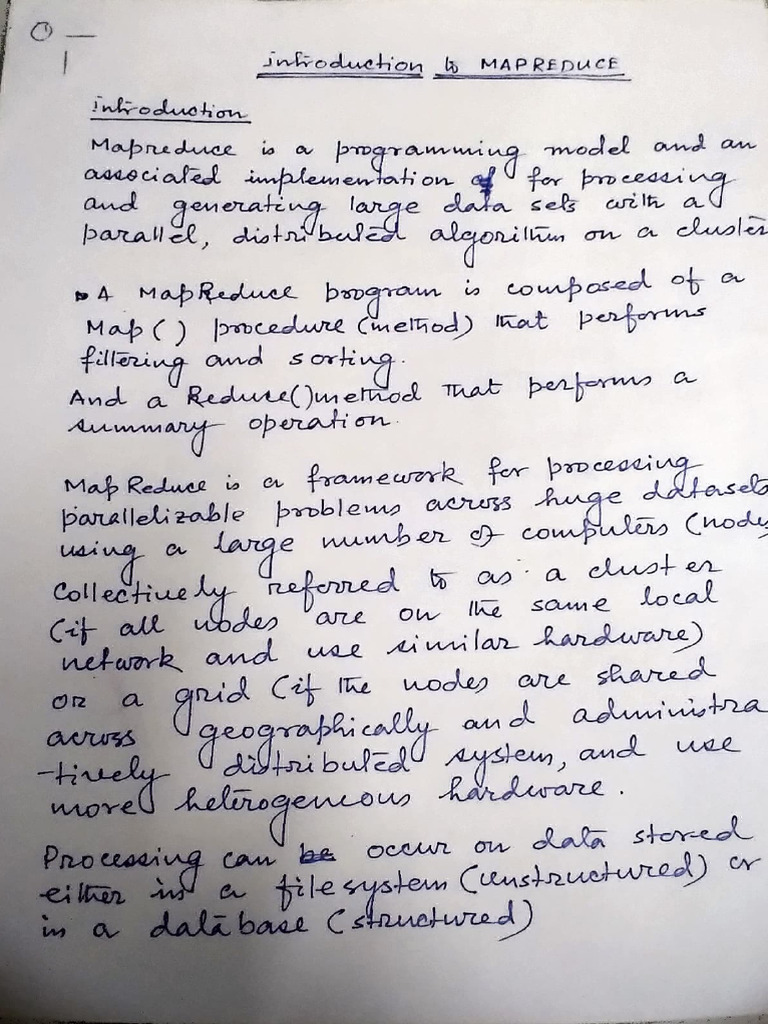 ①
introduction to MAPREDUCE
introduction
Mapreduce is a programming model and an
associated implementation of for processing
and generating large data sets with a
parallel, distributed algorithm on a cluster
A MapReduce program is composed of a
Map() procedure (method) that performs
filtering and sorting.
And a Reduce() method that performs a
summary operation.
MapReduce is a framework for processing
parallelizable problems across huge datasets
using a large number of computers (nodes
collectively referred to as a cluster
(if all nodes are on the same local
network and use similar hardware)
or a grid (if the nodes are shared
across geographically and administra
-tively distributed system, and use
more heterogeneous hardware.
Processing can be occur on data stored
either in a filesystem (unstructured) or
in a database (structured)